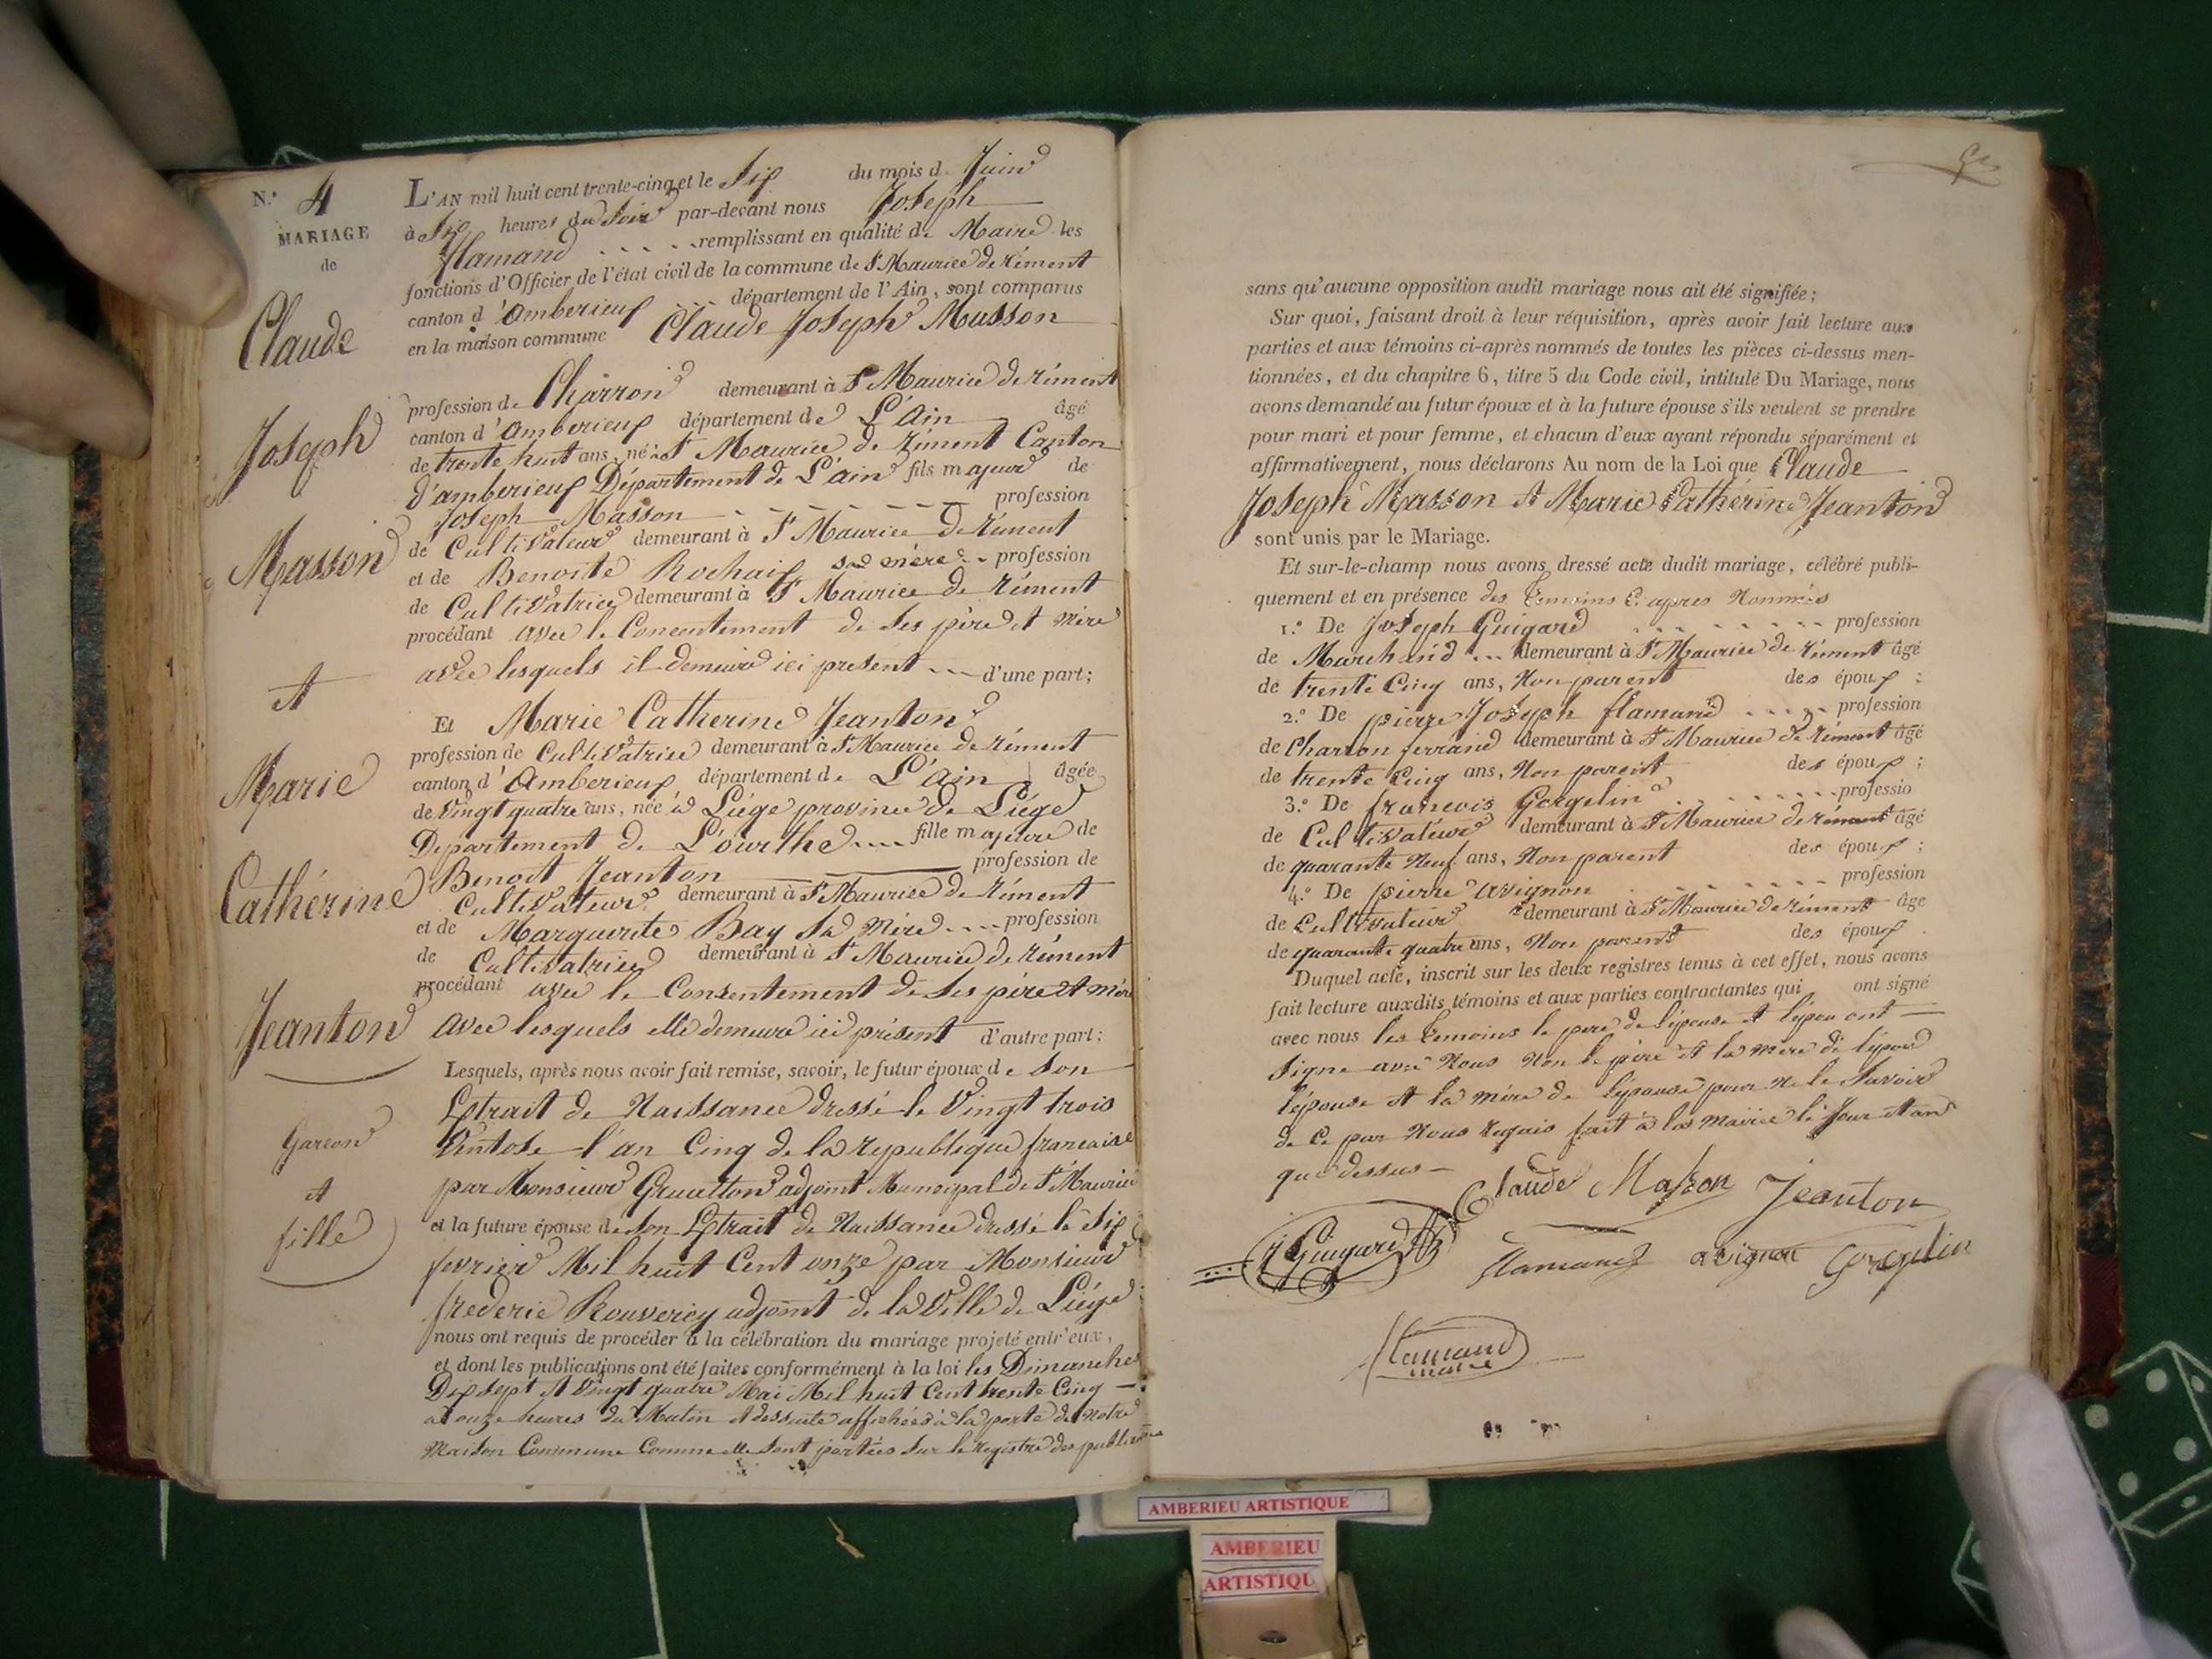 N.° 4
MARIAGE
de
Claude
Joseph
Masson
et
Marie
Cathérine
Jeanton
Garcon
et
fille
L'AN mil huit cent trente-cinq et le Six du mois de Juin
à Six heures du Soir par-devant nous Joseph
flamand remplissant en qualité de Maire les
fonctions d'Officier de l'état civil de la commune de St Maurice de rément
canton d'Amberieux département de l'Ain, sont comparus
en la maison commune Claude Joseph Masson
profession de Charron demeurant à St Maurice de rément
canton d'Amberieux département de L'Ain âgé
de trente huit ans, né à St Maurice de rément Canton
d'amberieux Département de L'ain fils majeur de
Joseph Masson profession
de Cultivateur demeurant à St Maurice de rément
et de Benoite Rochaix sa mère profession
de Cultivatrice demeurant à St Maurice de rément
procédant avec le Concentement de Ses père et mère
avec lesquels il demeure ici present d'une part;
Et Marie Catherine Jeanton
profession de Cultivatrice demeurant à St Maurice de rément
canton d'Amberieux département de L'Ain âgée
de Vingt quatre ans, née à Liége province de Liége
Département de L'ourthe fille majeure de
Benoit Jeanton profession de
Cultivateur demeurant à St Maurice de rément
et de Marguerite Bay Sa Mère profession
de Cultivatrice demeurant à St Maurice de rément
procédant avec le Consentement de Ses père et mère
avec lesquels elle demeure ici présent d'autre part;
Lesquels, après nous avoir fait remise, savoir, le futur époux de Son
Extrait de Naissance dressé le Vingt trois
Ventose l'an Cinq de la republique francaise
par Monsieur adjoint Municipal de St Maurice
et la future épouse de Son Extrait de Naissance dressé le Six
fevrier Mil huit Cent onze par Monsieur
frederic Rouveroy adjoint de la Ville de Liége
nous ont requis de procéder à la célébration du mariage projeté entr'eux,
et dont les publications ont été faites conformément à la loi les Dimanches
Dix Sept et Vingt quatre Mai Mil huit Cent trente Cinq
à onze heures du Matin et dessuite affichées à la porte de Notre
Maison Commune Comme elle Sont portées Sur le registre des publications
sans qu'aucune opposition audit mariage nous ait été signifiée;
Sur quoi, faisant droit à leur réquisition, après avoir fait lecture aux
parties et aux témoins ci-après nommés de toutes les pièces ci-dessus men-
tionnées, et du chapitre 6, titre 5 du Code civil, intitulé Du Mariage, nous
avons demandé au futur époux et à la future épouse s'ils veulent se prendre
pour mari et pour femme, et chacun d'eux ayant répondu séparément et
affirmativement, nous déclarons Au nom de la Loi que Claude
Joseph Masson et Marie Cathérine Jeanton
sont unis par le Mariage.
Et sur-le-champ nous avons dressé acte dudit mariage, célébré publi-
quement et en présence des temoins Ci apres Nommés
1.° De Joseph Guigard profession
de Marchand demeurant à St Maurice de rément âgé
de trente Cinq ans, Non parent des époux;
2.° De pierre Joseph flamand profession
de Charron ferrand demeurant à St Maurice de rément âgé
de trente Cinq ans, Non parent des époux;
3.° De francois Gorgelin professio
de Cultivateur demeurant à St Maurice de rément âgé
de quarante Neuf ans, Non parent des époux;
4.° De pierre avignon profession
de Cultivateur demeurant à St Maurice de rément âge
de quarante quatre ans, Non parent des époux.
Duquel acte, inscrit sur les deux registres tenus à cet effet, nous avons
fait lecture auxdits témoins et aux parties contractantes qui ont signé
avec nous les temoins le pere de l'épouse et l'épou ont
Signe avec Nous Non le père et la mère de l'épou
l'épouse et la mère de l'épouse pour Ne le Savoir
de Ce par Nous requis fait à la Mairie le Jour et an
que dessus
Claude Masson Jeanton
J Guigard flamand avignon Gorgelin
flamand
maire
AMBERIEU ARTISTIQUE
AMBERIEU
ARTISTIQU